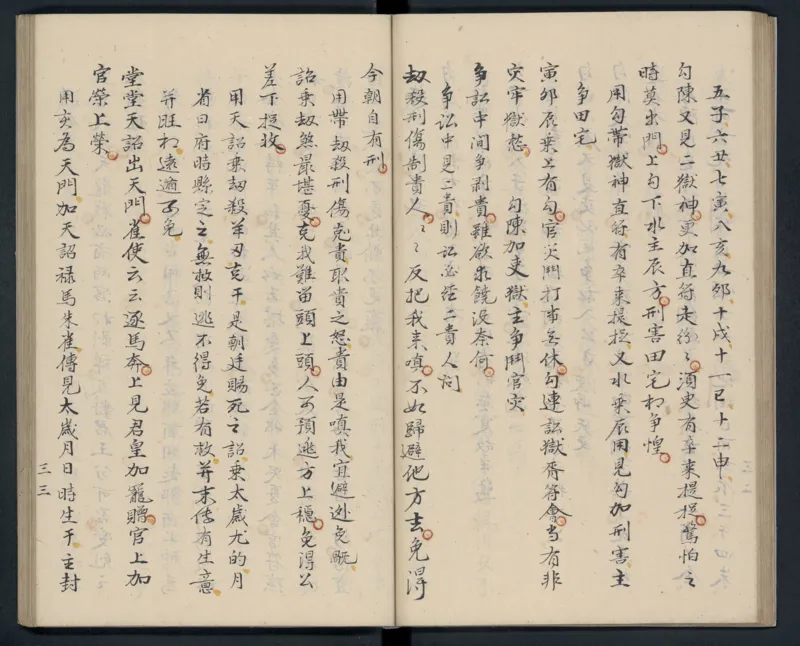 五子六丑七寅八亥九卯十戌十一巳十二申
勾陳又見二獄神更加直符走紛〻須臾有卒來提捉驚怕之
時莫出門上勾下水主辰方刑害田宅相争惶
用勾帶獄神直符有卒來提捉又水乘辰用見勾加刑害主
争田宅
寅卯辰乘上有勾官災鬥打布無休勾連訟獄胥符會當有非
災牢獄愁　勾陳加支獄主争鬥官災
争訟中间争剥貴雖欲求饒没奈何
争訟中見二貴則訟必經二貴人问
劫殺刑傷制貴人〻〻反把我来嗔不如歸避他方去免得
今朝自有刑
用帶劫殺刑傷尅貴取貴之怒貴由是嗔我宜避逊免
詔乘劫煞最堪憂克我難留頭上頭人可預逃方上穩免得公
差下捉收
用天詔乘劫殺羊刃克干是朝廷賜死之詔乘太歲九的月
省日府時縣定之無救則逃不得免若有救并末傳有生意
并旺相遠逾可免
堂堂天詔出天門雀使云云逐馬奔上見君皇加寵贈官上加
官榮上榮
用亥為天門加天詔禄馬朱雀傳見太歲月日時生干主封
三三